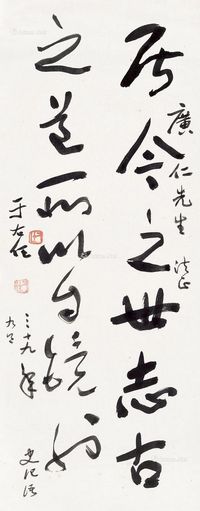 居今之世志古
之道所以自镜也
史記語
廣仁先生 法正
三十九年
于右任